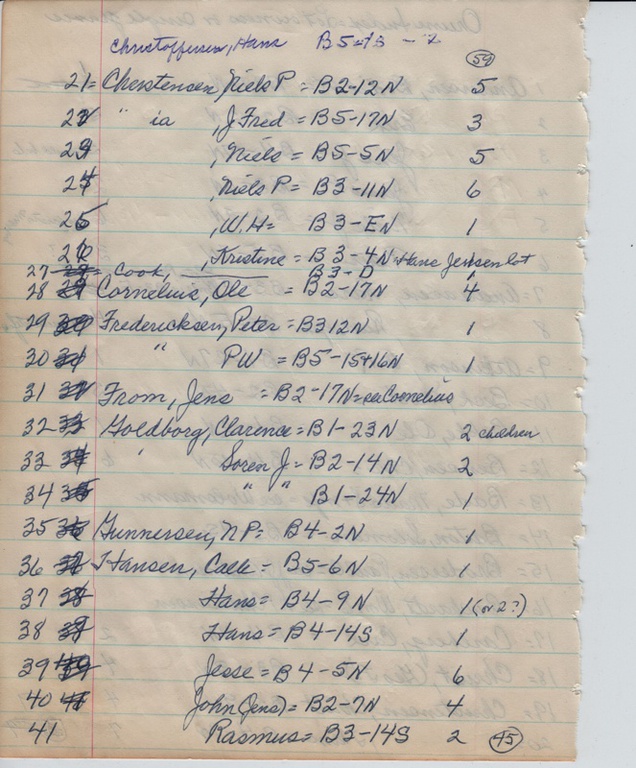 Christoffersen, Hans B5=7S - 2
(59)
21= Cherstensen, Niels P = B2-12N 5
22 " ia , J Fred = B5-17N 3
23 , Niels = B5-5N 5
24 , Niels P = B3-11N 6
25 , W.H= B3-EN 1
26 , Kristine = B3-4N = Hans Jensen lot
27 , Cook, B3-D 1
28 Cornelius, Ole = B2-17N 4
29 Fredericksen, Peter = B3 12N 1
30 " PW = B5-15+16N 1
31 From, Jens = B2-17N = see Cornelius
32 Goldborg, Clarence = B1-23N 2 children
33 " Soren J = B2-14N 2
34 " " B1-24N 1
35 Gunnersen, NP= B4-2N 1
36 Hansen, = B5-6N 1
37 Hans = B4-9N 1 (or 2?)
38 Hans = B4-14S 1
39 Jesse = B4-5N 6
40 John (Jens) = B2-7N 4
41 Rasmus = B3-14S 2 (45)